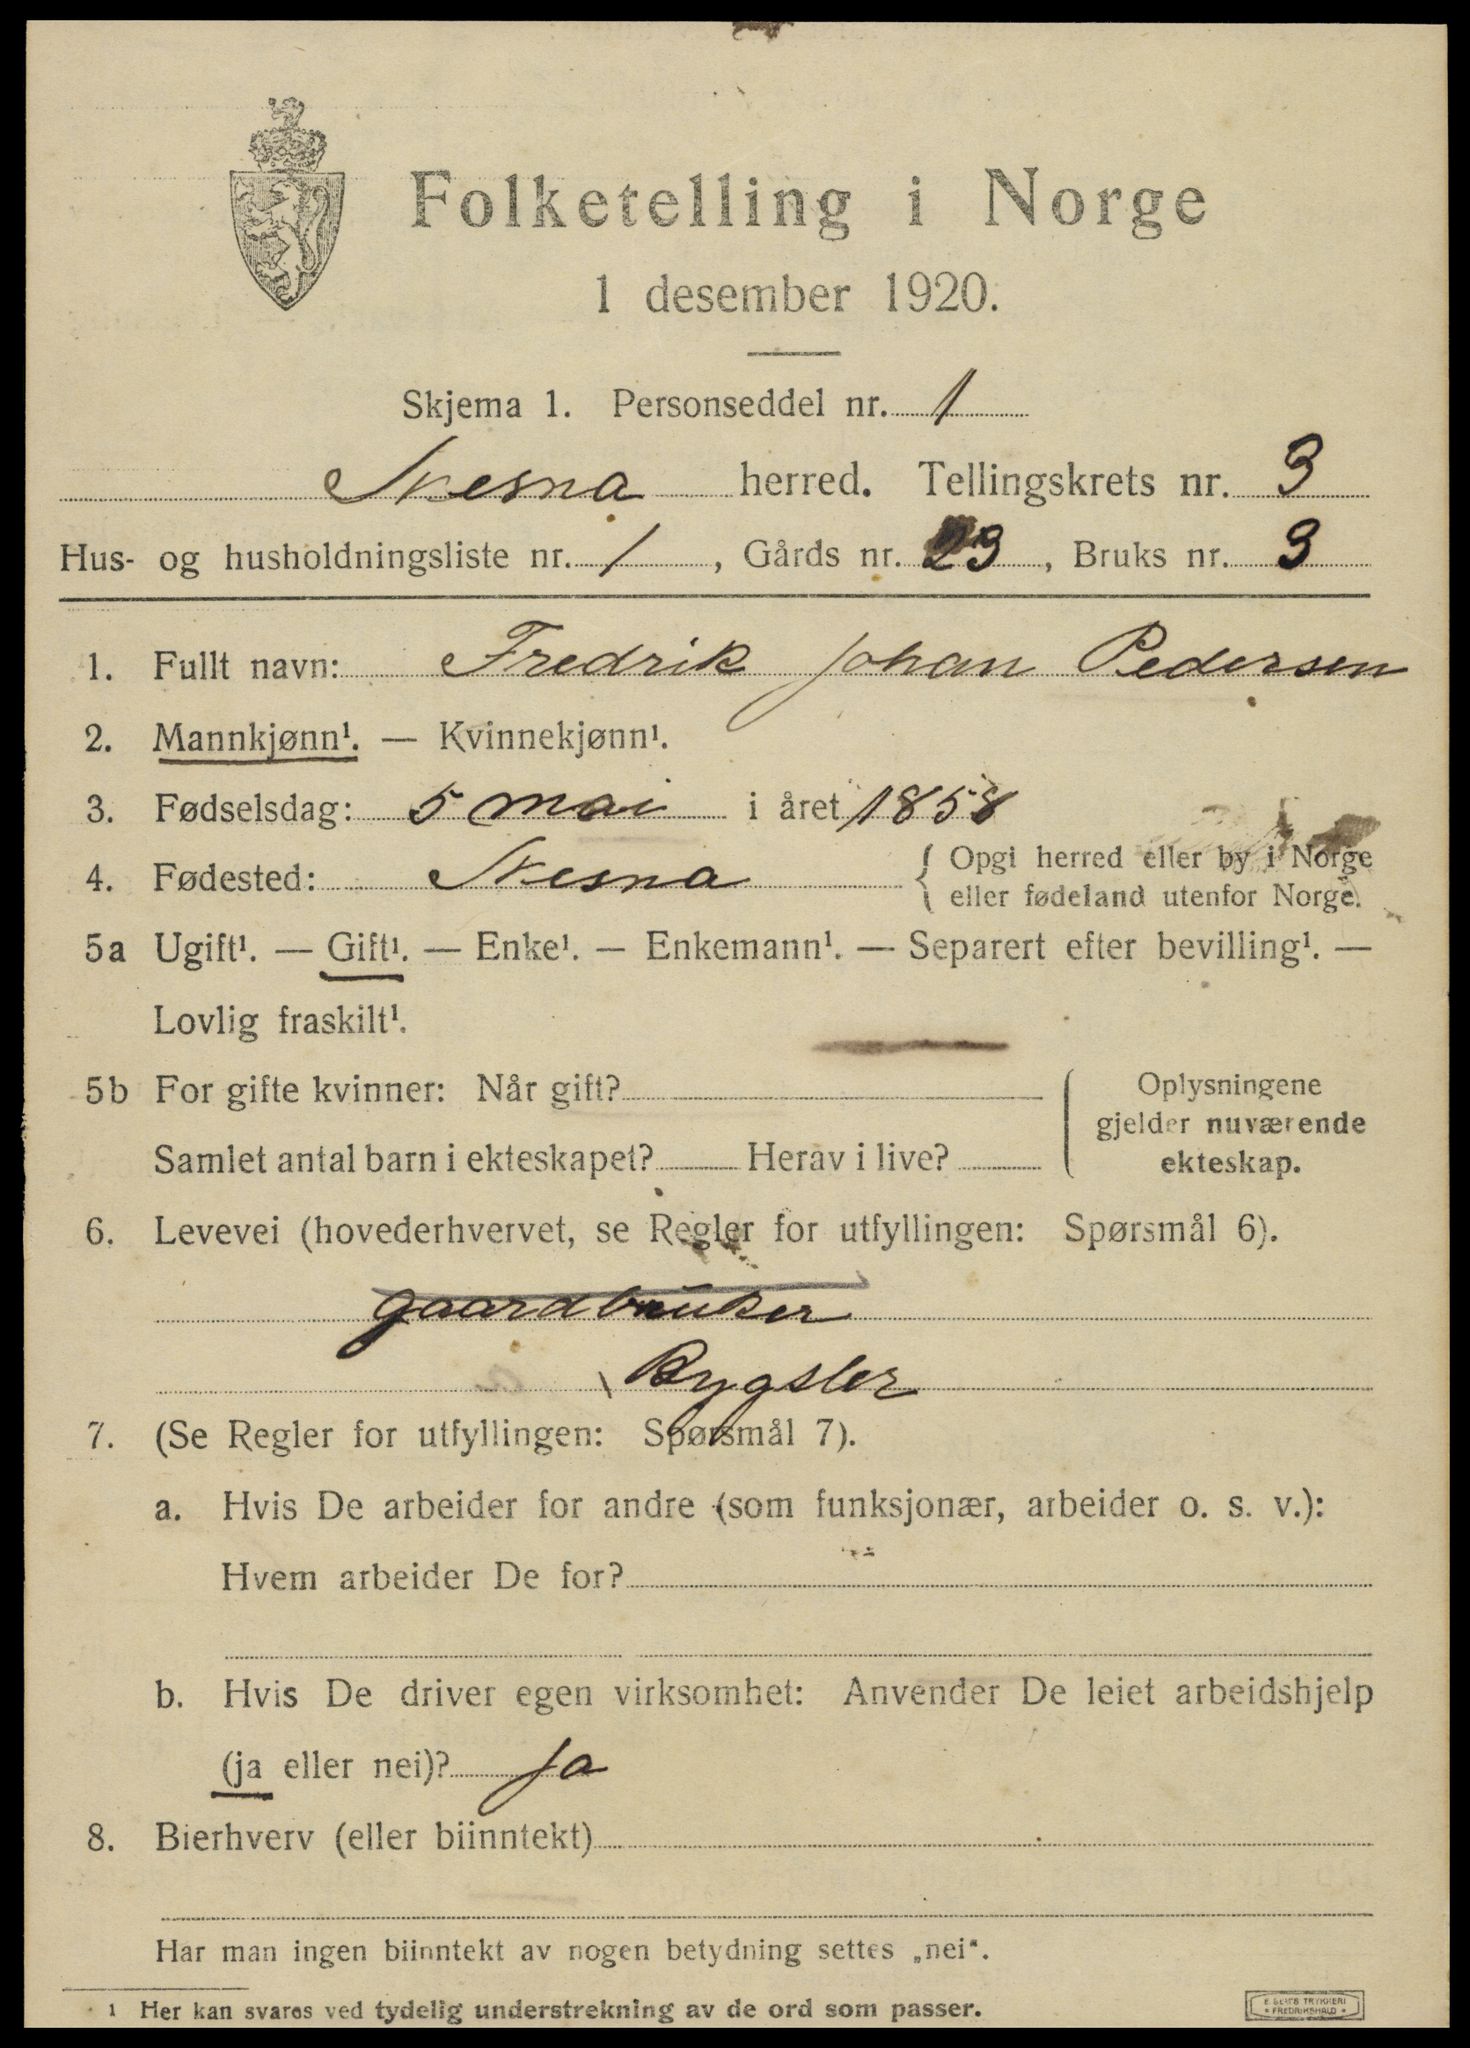 Folketelling i Norge
1 desember 1920.
Skjema 1. Personseddel nr. 1
Nesna herred. Tellingskrets nr. 3
Hus- og husholdningsliste nr. 1, Gårds nr. 23, Bruks nr. 3
1. Fullt navn: Fredrik Johan Pedersen
2. Mannkjønn¹. — Kvinnekjønn¹.
3. Fødselsdag: 5 mai i året 1858
4. Fødested: Nesna { Opgi herred eller by i Norge
eller fødeland utenfor Norge.
5a Ugift¹. — Gift¹. — Enke¹. — Enkemann¹. — Separert efter bevilling¹. —
Lovlig fraskilt¹.
5b For gifte kvinner: Når gift?
Samlet antal barn i ekteskapet? Herav i live?
Oplysningene
gjelder nuværende
ekteskap.
6. Levevei (hovederhvervet, se Regler for utfyllingen: Spørsmål 6).
gaardbruker
Bygsler
7. (Se Regler for utfyllingen: Spørsmål 7).
a. Hvis De arbeider for andre (som funksjonær, arbeider o. s. v.):
Hvem arbeider De for?
b. Hvis De driver egen virksomhet: Anvender De leiet arbeidshjelp
(ja eller nei)? Ja
8. Bierhverv (eller biinntekt)
Har man ingen biinntekt av nogen betydning settes „nei“.
¹ Her kan svares ved tydelig understrekning av de ord som passer.
E. SEM'S TRYKKERI
FREDRIKSHALD